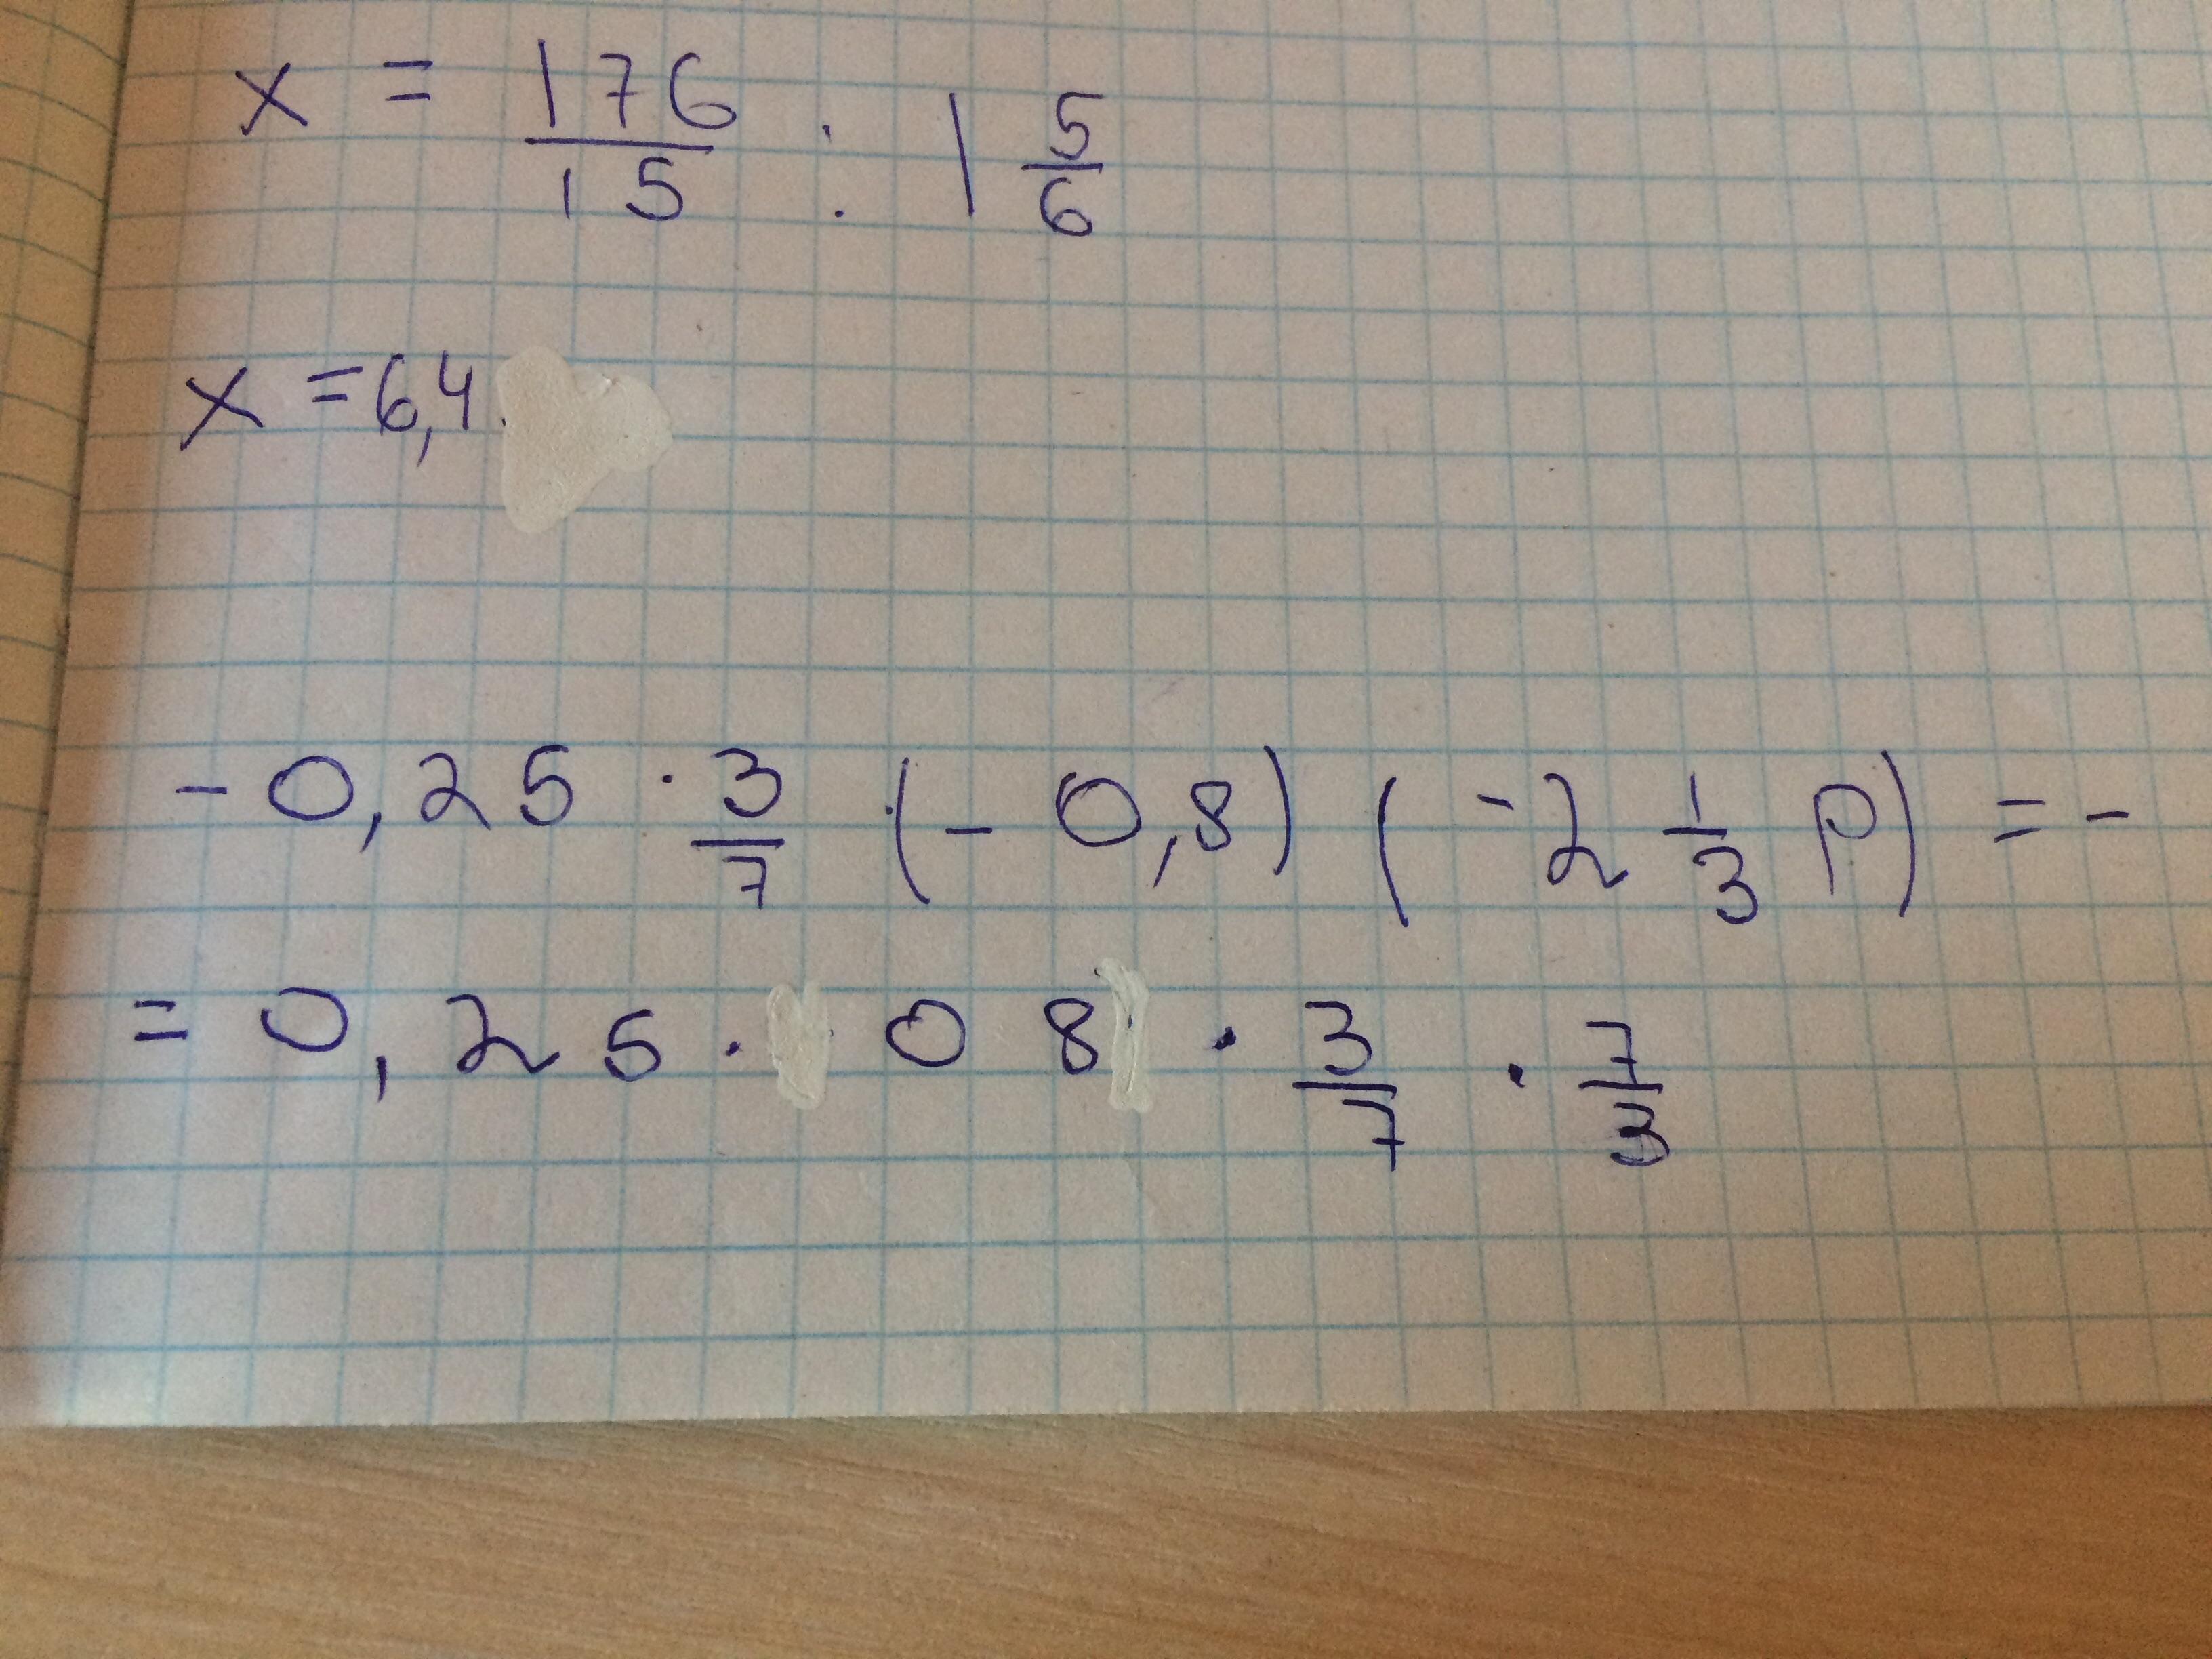 x = 176/15 : 1 5/6
x = 6,4
- 0,25 · 3/7 (- 0,8) (-2 1/3 p) = -
= 0,25 · 0 8 · 3/7 · 7/3